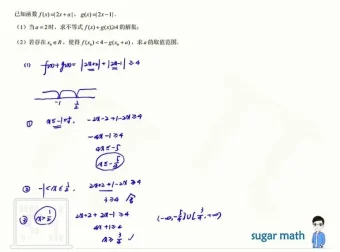 已知函数 f(x)=|2x+a|，g(x)=|2x-1|.
（1）当 a=2时，求不等式 f(x)+g(x)≥4 的解集;
（2）若存在 x₀∈R，使得 f(x₀)<4-g(x₀+a)，求 a 的取值范围.
(1) f(x)+g(x)= |2x+2|+|2x-1| ≥4
-1 ½
① x≤-1时, -2x-2+1-2x≥4
-4x-1≥4
4x≤-5
x≤-5/4
② -1<x≤½, 2x+2+1-2x≥4
3≥4
③ x>½ 2x+2+2x-1≥4
4x+1≥4
x≥¾ ✓
(-∞,-5/4]∪[¾,+∞)
sugar math